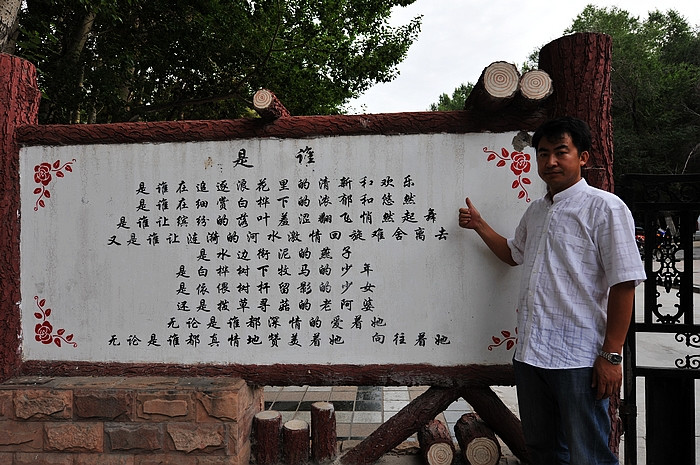 是 谁
是谁在追逐浪花里的清新和欢乐
是谁在细赏白桦下的浓郁和悠然
是谁让缤纷的落叶羞涩翻飞悄然起舞
又是谁让涟漪的河水激情回旋难舍离去
是水边衔泥的燕子
是白桦树下牧马的少年
是依偎树杆留影的少女
还是拔草寻菇的老阿婆
无论是谁都深情的爱着她
无论是谁都真情地赞美着她 向往着她